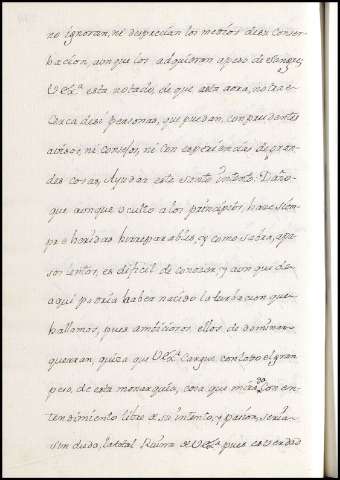 no ignoran, ni desprecian los medios de su conser-
bacion, aunque los adquieran apeso de sangre,
V Exª. esta notado, de que asta aora, no trae
cerca de si personas, que puedan, con prudentes
avisos, ni consejos, ni con esperiencias de gran-
des cosas, Ayudar este santo intento. Daño
que aunque oculto a los principios, hace siem-
pre heridas irreparables, y como sabra, ape-
sar lento, es dificil de conocer, y aun que de
aqui podria haber nacido la turbacion que
hallamos, pues ambiciosos ellos de dominar,
querran, quiza que V Exª. cargue con todo el gran
peso, de esta monarquia, cosa que mirada con en-
tendimiento libre de su intento, y pasion, seria
sin duda, la total Ruina de V Exª. pues es verdad